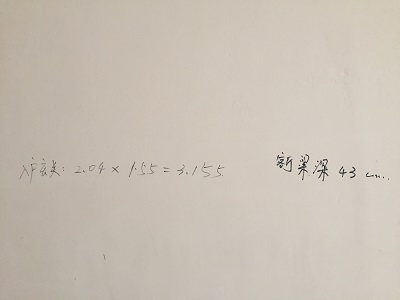 入户玄关: 2.04 × 1.55 = 3.155
梁深 43 cm